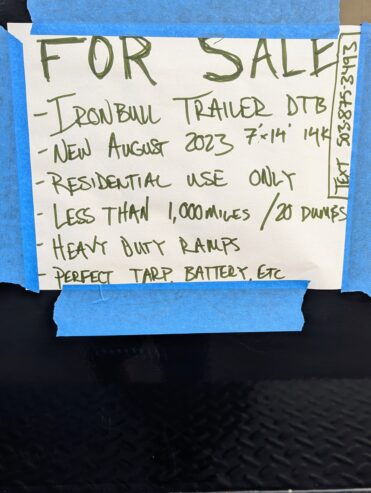 FOR SALE
- IRONBULL TRAILER DTB
- NEW AUGUST 2023 7'x14' 14K
- RESIDENTIAL USE ONLY
- LESS THAN 1,000 MILES / 20 DUMPS
- HEAVY DUTY RAMPS
- PERFECT TARP, BATTERY, ETC
TEXT 503-875-3493